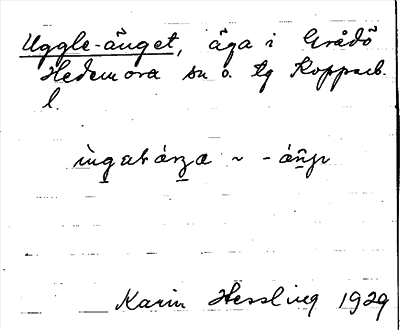 Uggle-änget, äga i Grådö
Hedemora sn o. tg Kopparb.
l.
~
Karin Hessling 1929